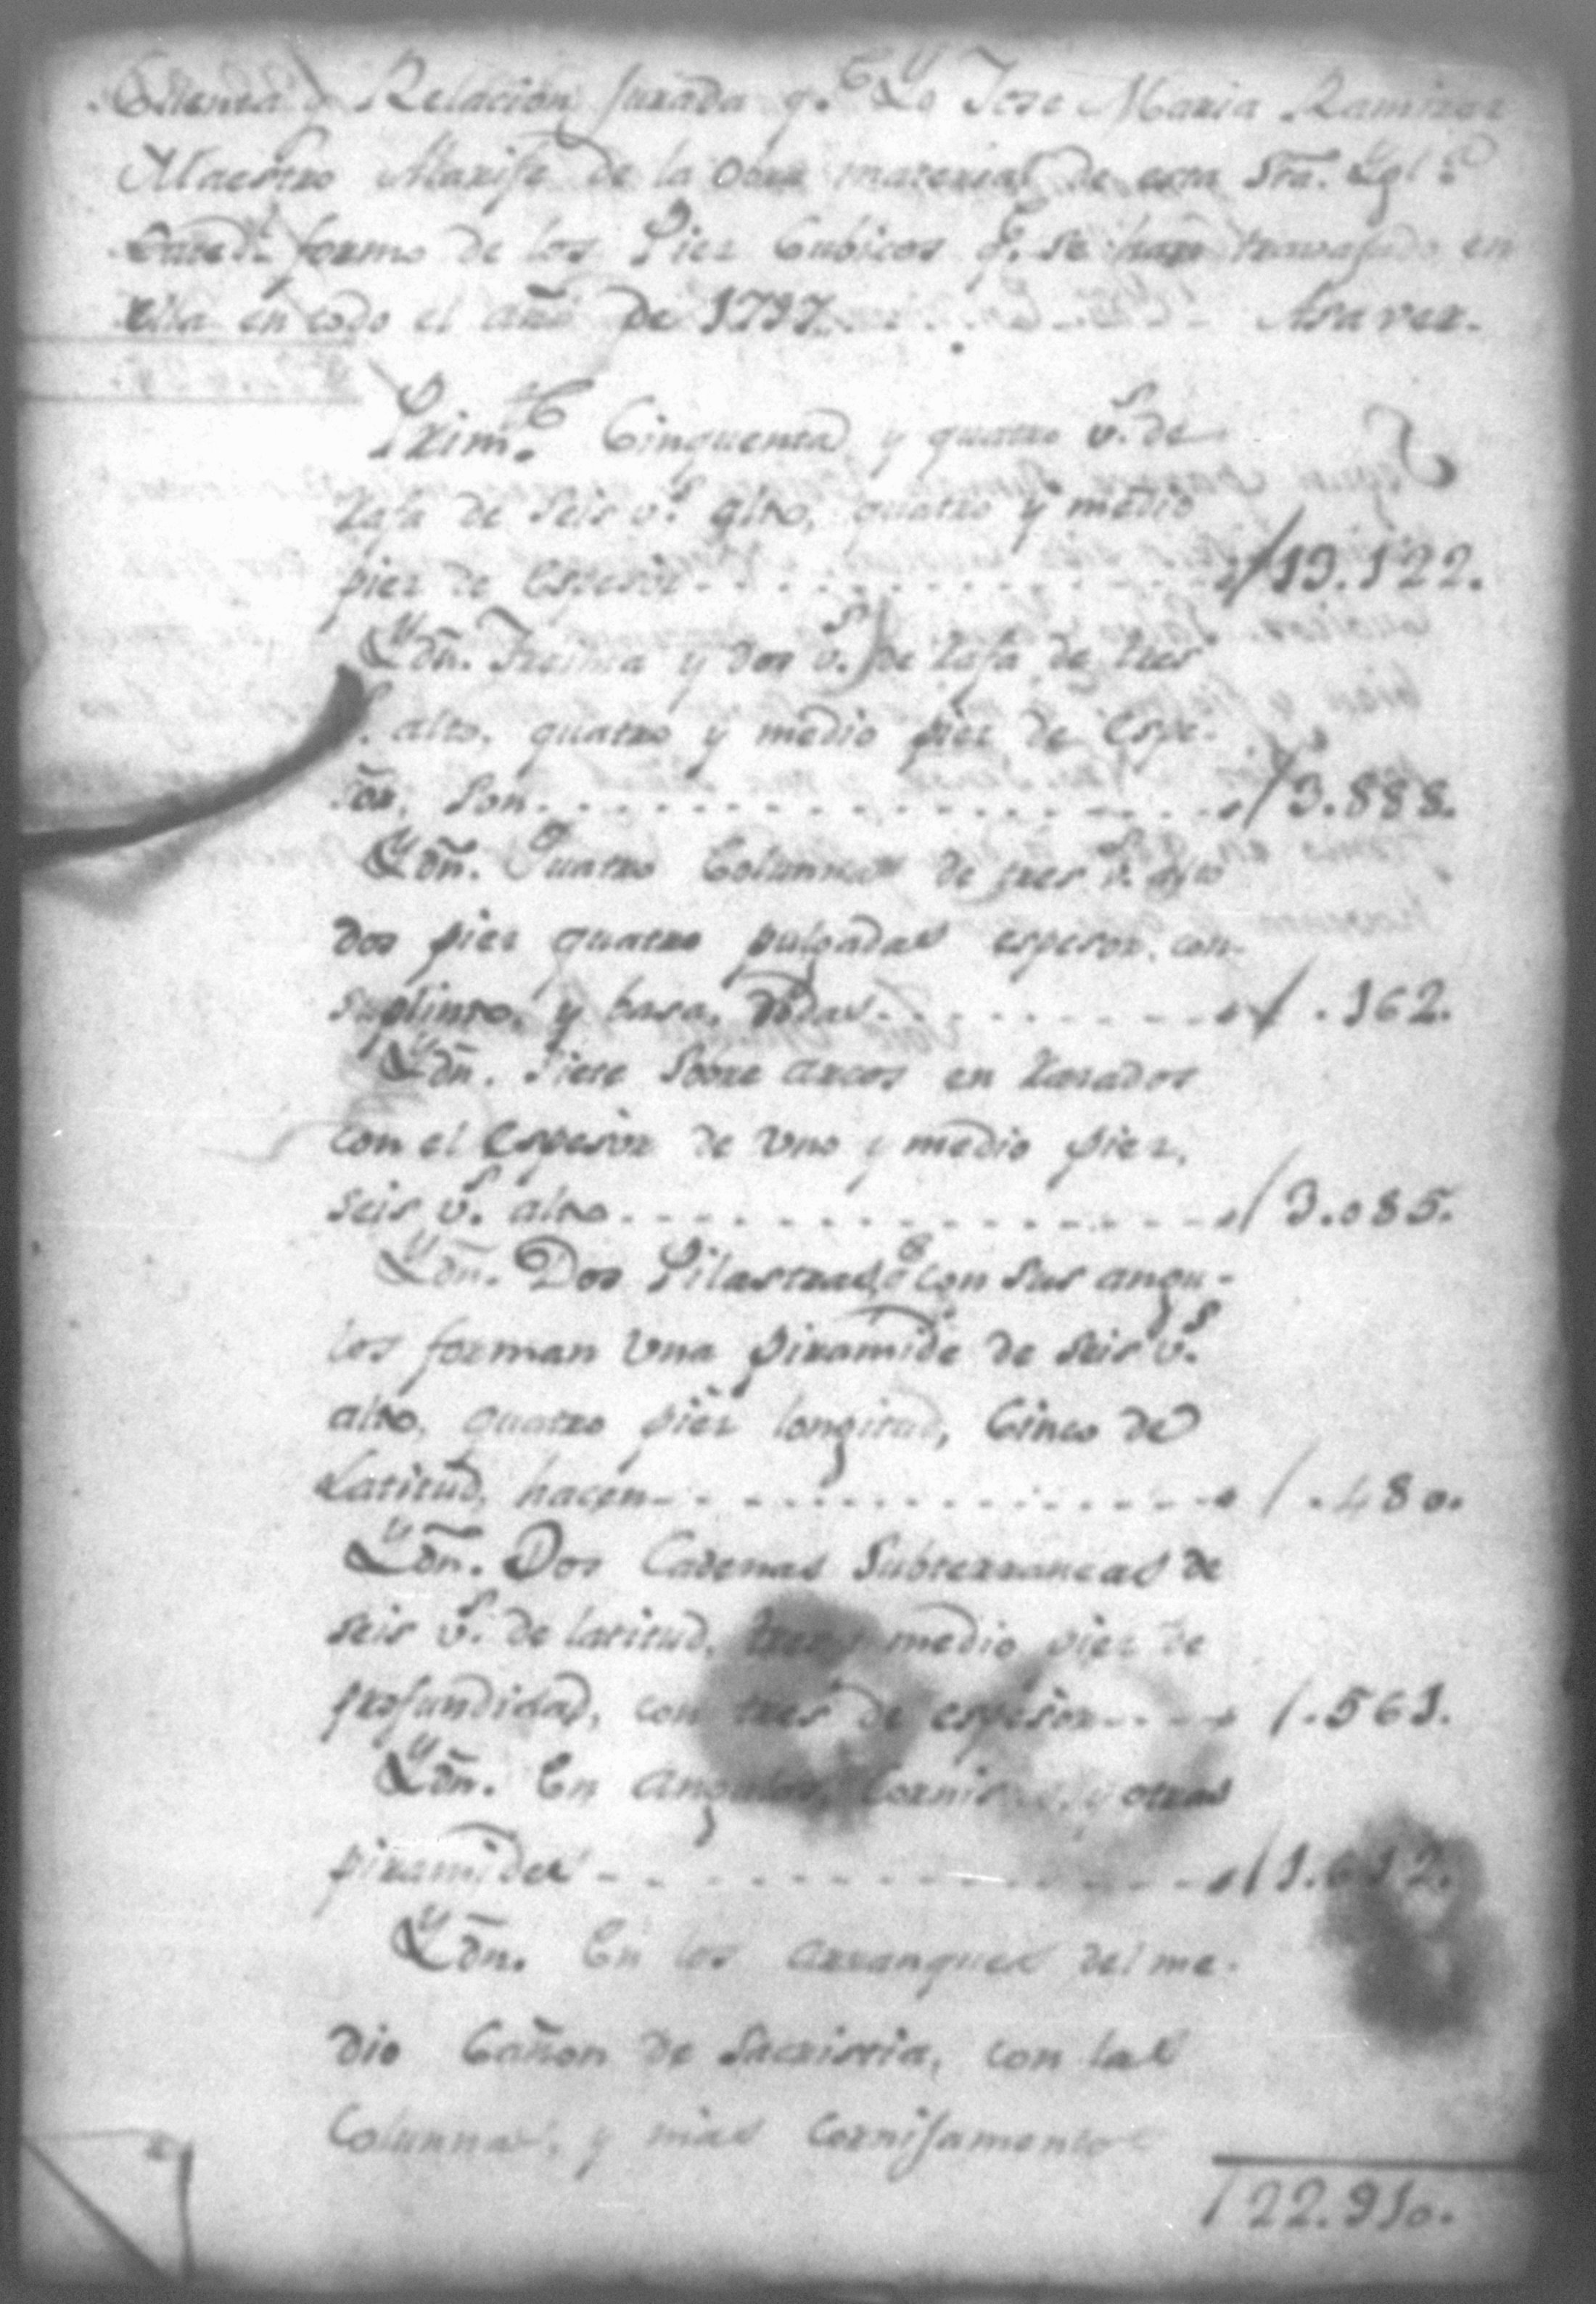 Cuenta y Relacion Jurada q.e Yo Jose Maria Ramirez
Maestro Alarife de la Obra material de esta Sta. Ygl.a
Cated.l formo de los Pies Cubicos q.e se han travajado en
Ella en todo el año de 1797. Asaver.
Prim.te Cinquenta y quatro v.s de
Zafa de Seis v.s alto, quatro y medio
pies de Espesor 13.122.
Ydn. Treinta y dos v.s de Zafa de tres
alto, quatro y medio pies de Espe-
sor, Son 3.888.
Ydn. Quatro Columnas de tres v.s alto
dos pies quatro pulgadas espesor, con
suplinto, y basa, todas .162.
Ydn. Siete Sobre arcos en Zarados
con el Espesor de Uno y medio pies,
seis v.s alto 3.085.
Ydn. Dos Pilastras, q.e con sus angu-
los forman Una piramide de seis v.s
alto, quatro pies longitud, Cinco de
Latitud, hacen .480.
Ydn. Dos Cadenas Subterraneas de
seis v.s de latitud, tres y medio pies de
profundidad, con tres de espesor .561.
Ydn. En Angulos, Cornisas, y otras
piramides 1.612.
Ydn. En los arranques del me-
dio Cañon de Sacristia, con las
Columnas, y mas Cornisamentos
22.910.